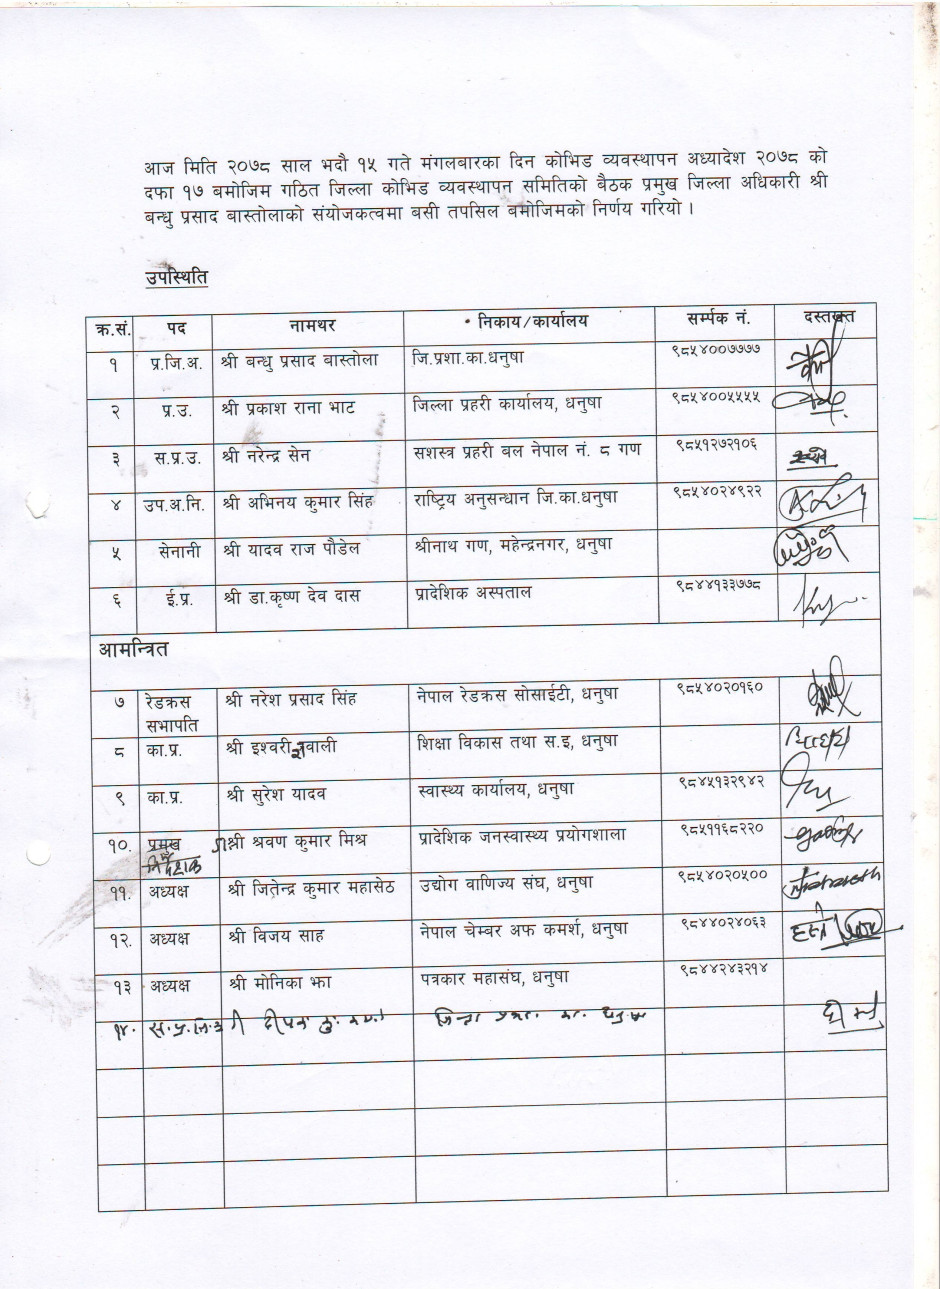 आज मिति २०७८ साल भदौ १५ गते मंगलबारका दिन कोभिड व्यवस्थापन अध्यादेश २०७८ को
दफा १७ बमोजिम गठित जिल्ला कोभिड व्यवस्थापन समितिको बैठक प्रमुख जिल्ला अधिकारी श्री
बन्धु प्रसाद बास्तोलाको संयोजकत्वमा बसी तपसिल बमोजिमको निर्णय गरियो ।
उपस्थिति
क्र.सं. पद नामथर निकाय/कार्यालय सर्म्पक नं. दस्तखत
१ प्र.जि.अ. श्री बन्धु प्रसाद बास्तोला जि.प्रशा.का.धनुषा ९८५४००७७७७
२ प्र.उ. श्री प्रकाश राना भाट जिल्ला प्रहरी कार्यालय, धनुषा ९८५४००५५५५
३ स.प्र.उ. श्री नरेन्द्र सेन सशस्त्र प्रहरी बल नेपाल नं. ८ गण ९८५१२७२१०६
४ उप.अ.नि. श्री अभिनय कुमार सिंह राष्ट्रिय अनुसन्धान जि.का.धनुषा ९८५४०२४९२२
५ सेनानी श्री यादव राज पौडेल श्रीनाथ गण, महेन्द्रनगर, धनुषा
६ ई.प्र. श्री डा.कृष्ण देव दास प्रादेशिक अस्पताल ९८४४१३३७७८
आमन्त्रित
७ रेडक्रस सभापति श्री नरेश प्रसाद सिंह नेपाल रेडक्रस सोसाईटी, धनुषा ९८५४०२०१६०
८ का.प्र. श्री इश्वरी ज्ञवाली शिक्षा विकास तथा स.इ, धनुषा
९ का.प्र. श्री सुरेश यादव स्वास्थ्य कार्यालय, धनुषा ९८४५१३२९४२
१०. प्रमुख निर्देशक श्री श्रवण कुमार मिश्र प्रादेशिक जनस्वास्थ्य प्रयोगशाला ९८५११६८२२०
११. अध्यक्ष श्री जितेन्द्र कुमार महासेठ उद्योग वाणिज्य संघ, धनुषा ९८५४०२०५००
१२. अध्यक्ष श्री विजय साह नेपाल चेम्बर अफ कमर्श, धनुषा ९८४४०२४०६३
१३ अध्यक्ष श्री मोनिका झा पत्रकार महासंघ, धनुषा ९८४४२४३२१४
१४. स.प्र.जि.अ